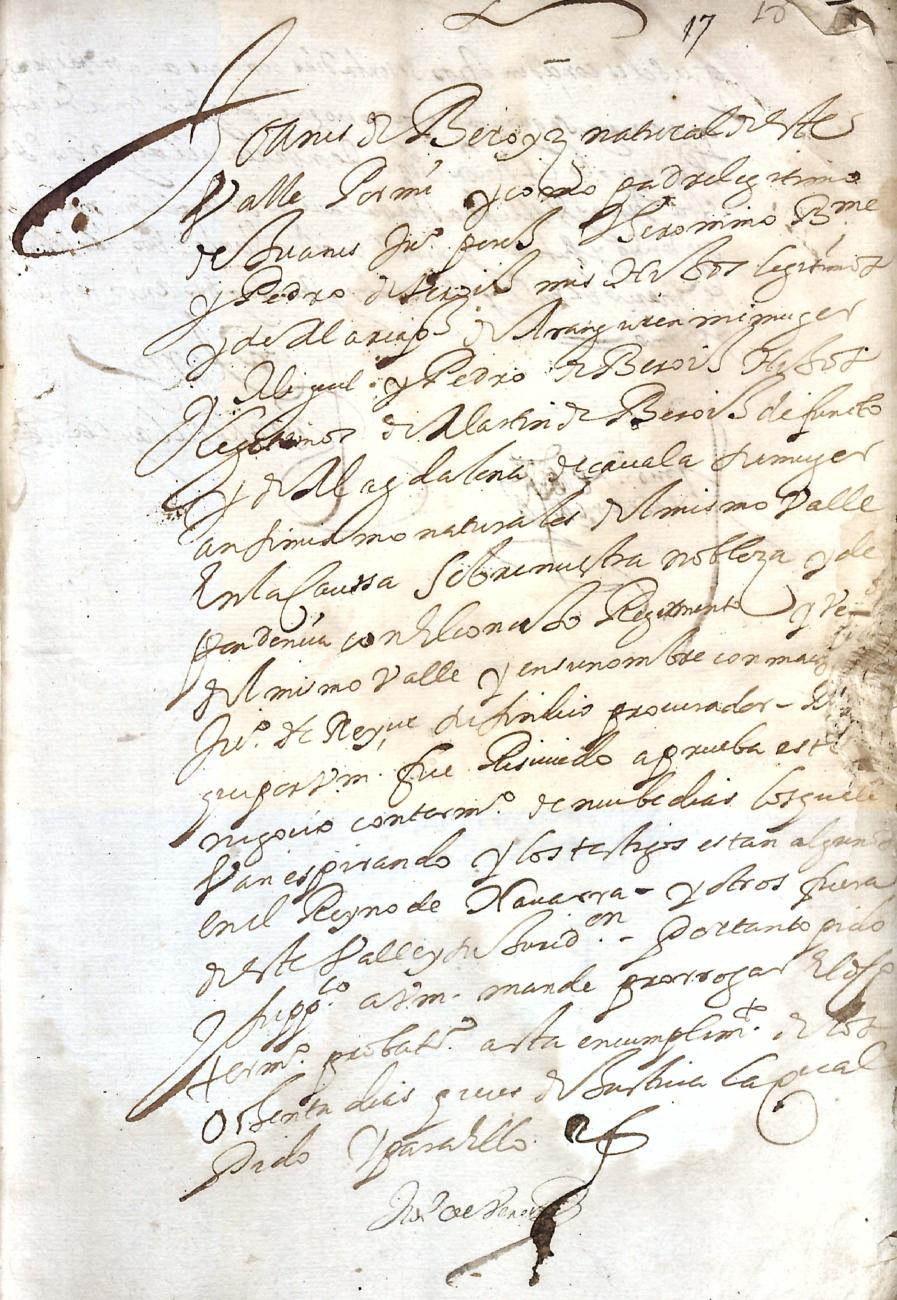 17 18
Joanes de Beroyz natural deste
Valle Por mi y como padre legitimo
de Juanes Ju.º peres Iheronimo Bme
y Pedro de Berois mis Hijos legitimos
y de Maria de Aranguren mi muger
y Miguel y Pedro de Berois Hijos
legitimos de Martin de Berois defuncto
y de Magdalena su muger
ansimismo naturales del mismo Valle
En la Caussa sobre nuestra nobleza y de
pendencia con el Regimiento y Ve-
del mismo Valle y en su nombre con
Ju.º de procurador
que por Vm. fue Reciuido a prueba este
negocio con term.º de nuebe dias los quales
Van espirando y los testigos estan algunos
en el Reyno de Nauarra - y otros fuera
deste Valle y su Jurid.on - Portanto pido
y supp.co a Vm. mande prorrogar El
term.º probat.º asta en cumplim.tº de los
Ochenta dias pues es de Justicia la qual
Pido y para Ello